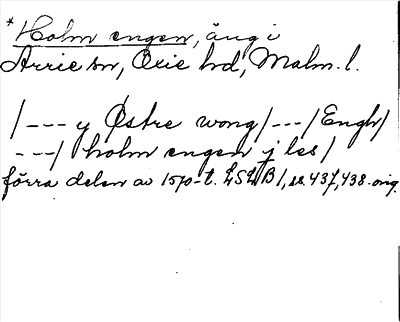 *Holm engen, äng i
Arrie sn, Oxie hd, Malm. l.
/--- y Østre wong/---/Engh/
---/ holm engen j les/
förra delen av 1570-t. LSLB1, ss. 437, 438. orig.